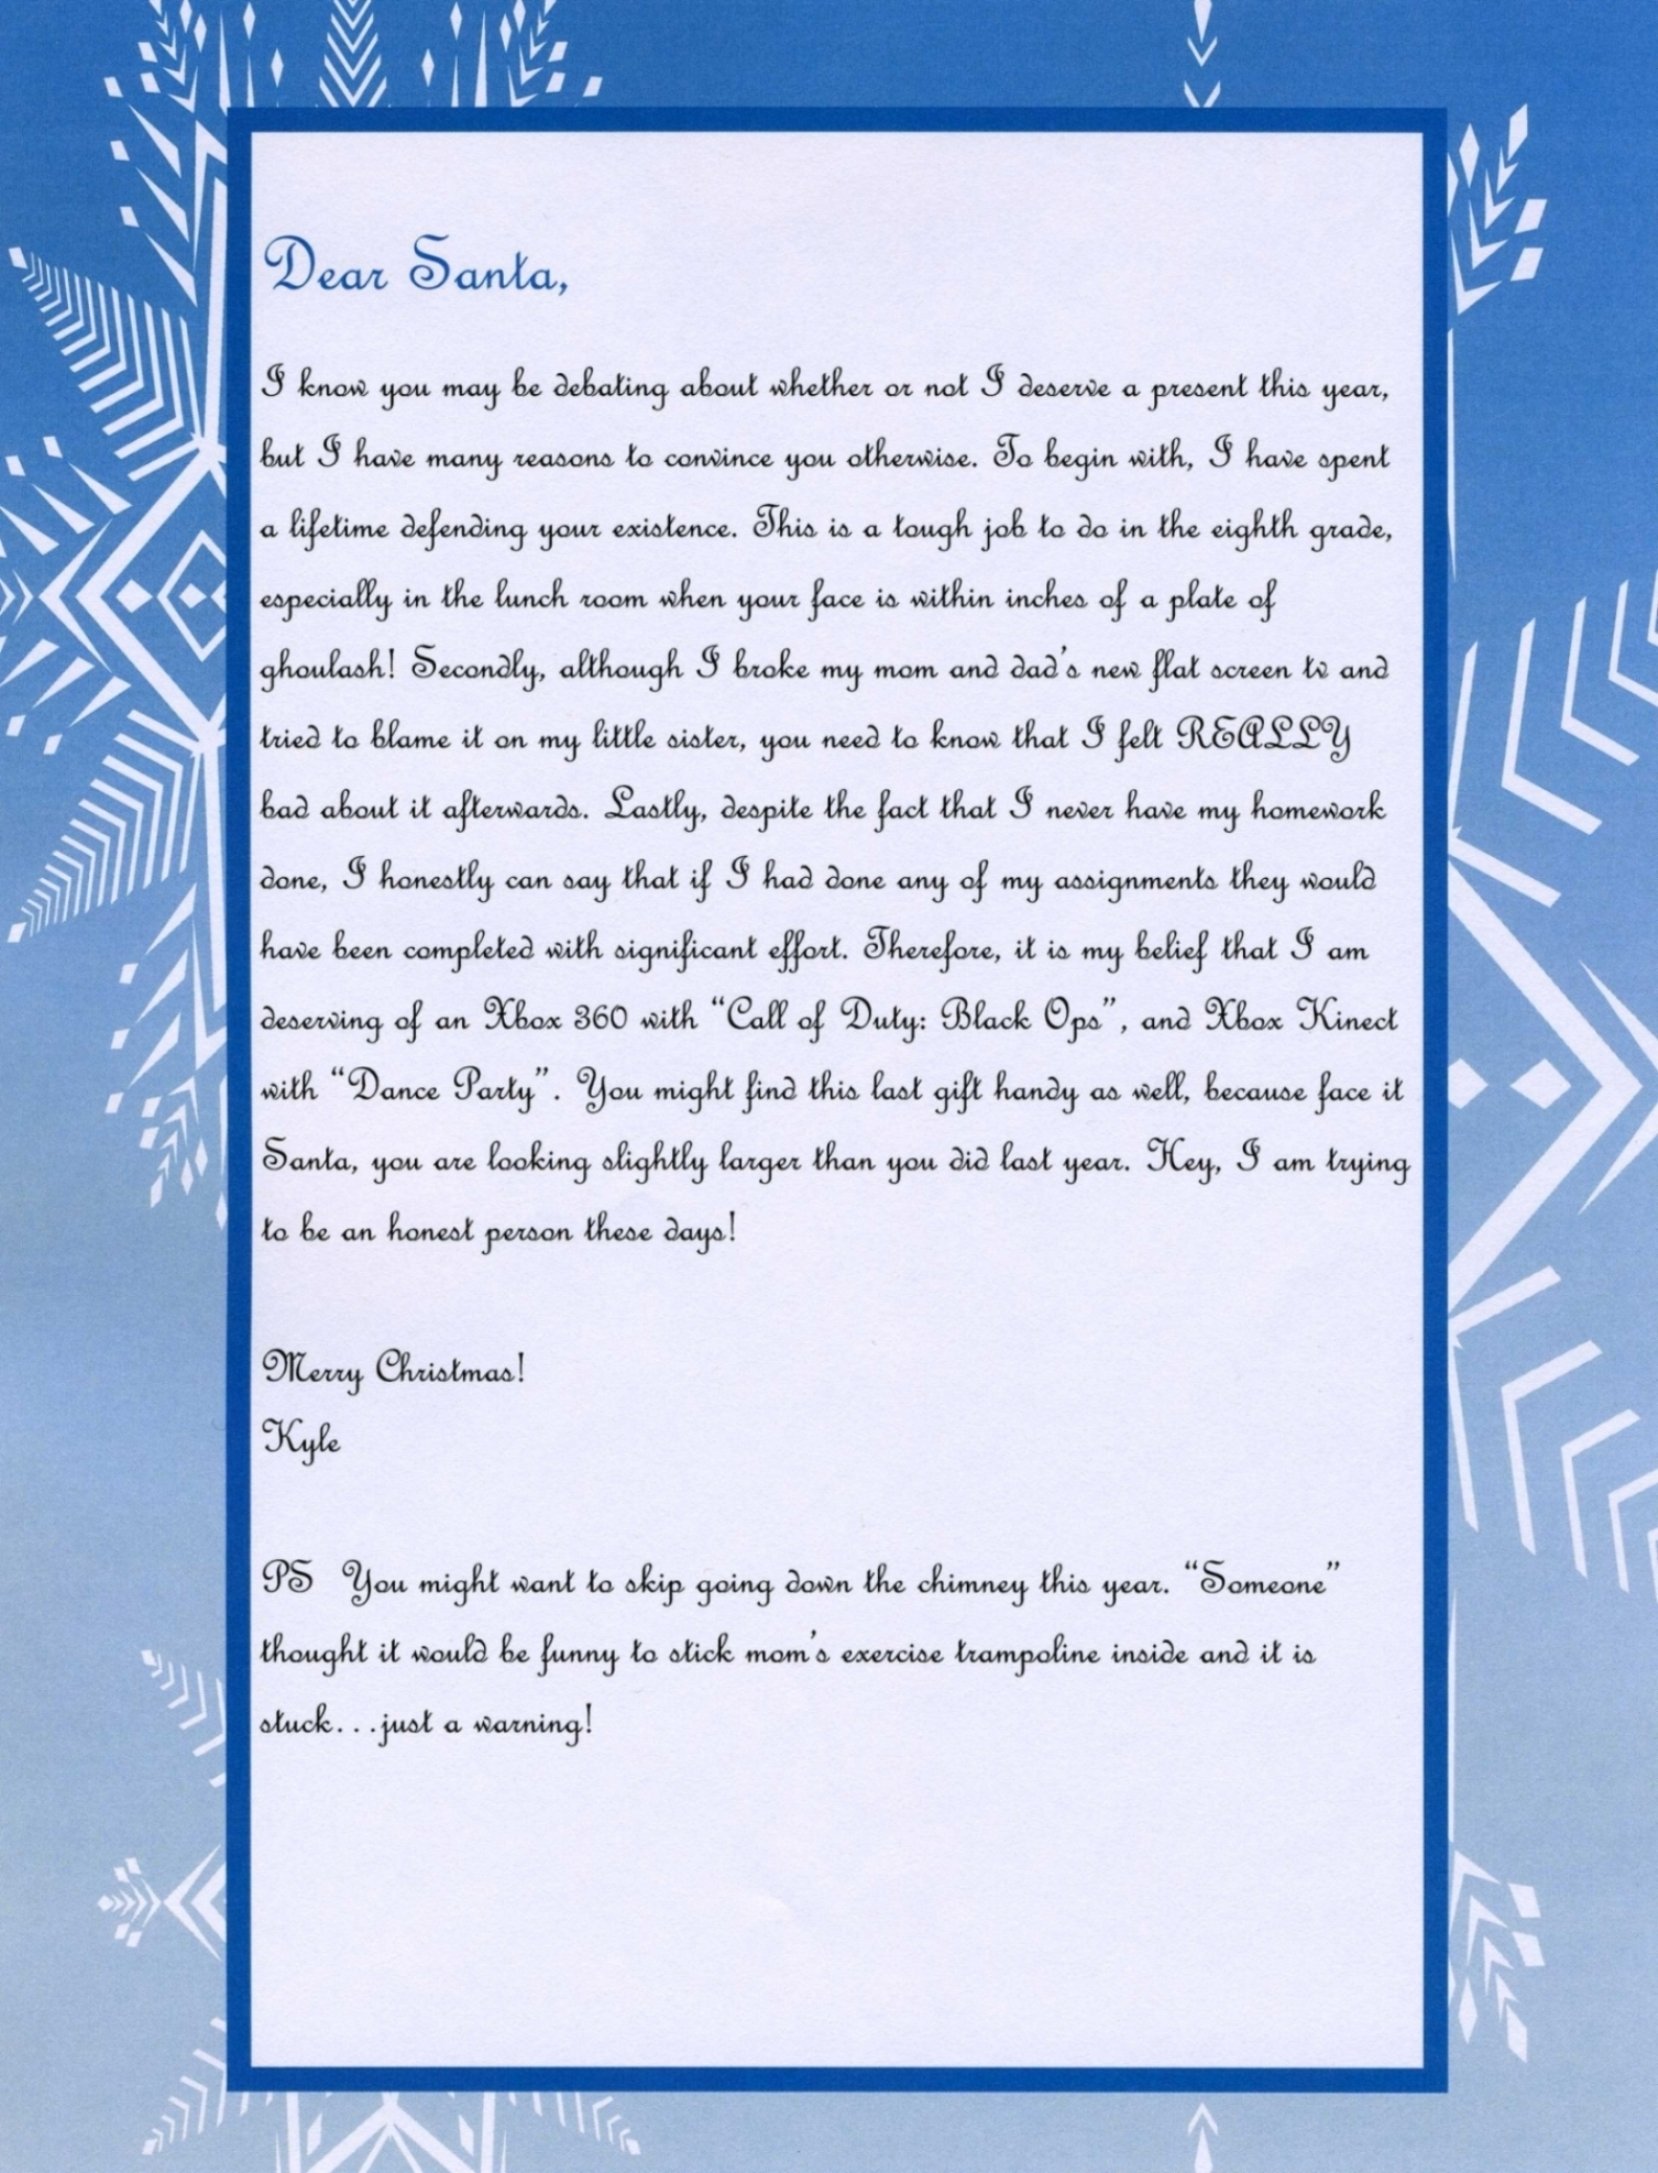 Dear Santa,
I know you may be debating about whether or not I deserve a present this year,
but I have many reasons to convince you otherwise. To begin with, I have spent
a lifetime defending your existence. This is a tough job to do in the eighth grade,
especially in the lunch room when your face is within inches of a plate of
ghoulash! Secondly, although I broke my mom and dad's new flat screen tv and
tried to blame it on my little sister, you need to know that I felt REALLY
bad about it afterwards. Lastly, despite the fact that I never have my homework
done, I honestly can say that if I had done any of my assignments they would
have been completed with significant effort. Therefore, it is my belief that I am
deserving of an Xbox 360 with “Call of Duty: Black Ops”, and Xbox Kinect
with “Dance Party”. You might find this last gift handy as well, because face it
Santa, you are looking slightly larger than you did last year. Hey, I am trying
to be an honest person these days!
Merry Christmas!
Kyle
PS You might want to skip going down the chimney this year. “Someone”
thought it would be funny to stick mom's exercise trampoline inside and it is
stuck...just a warning!